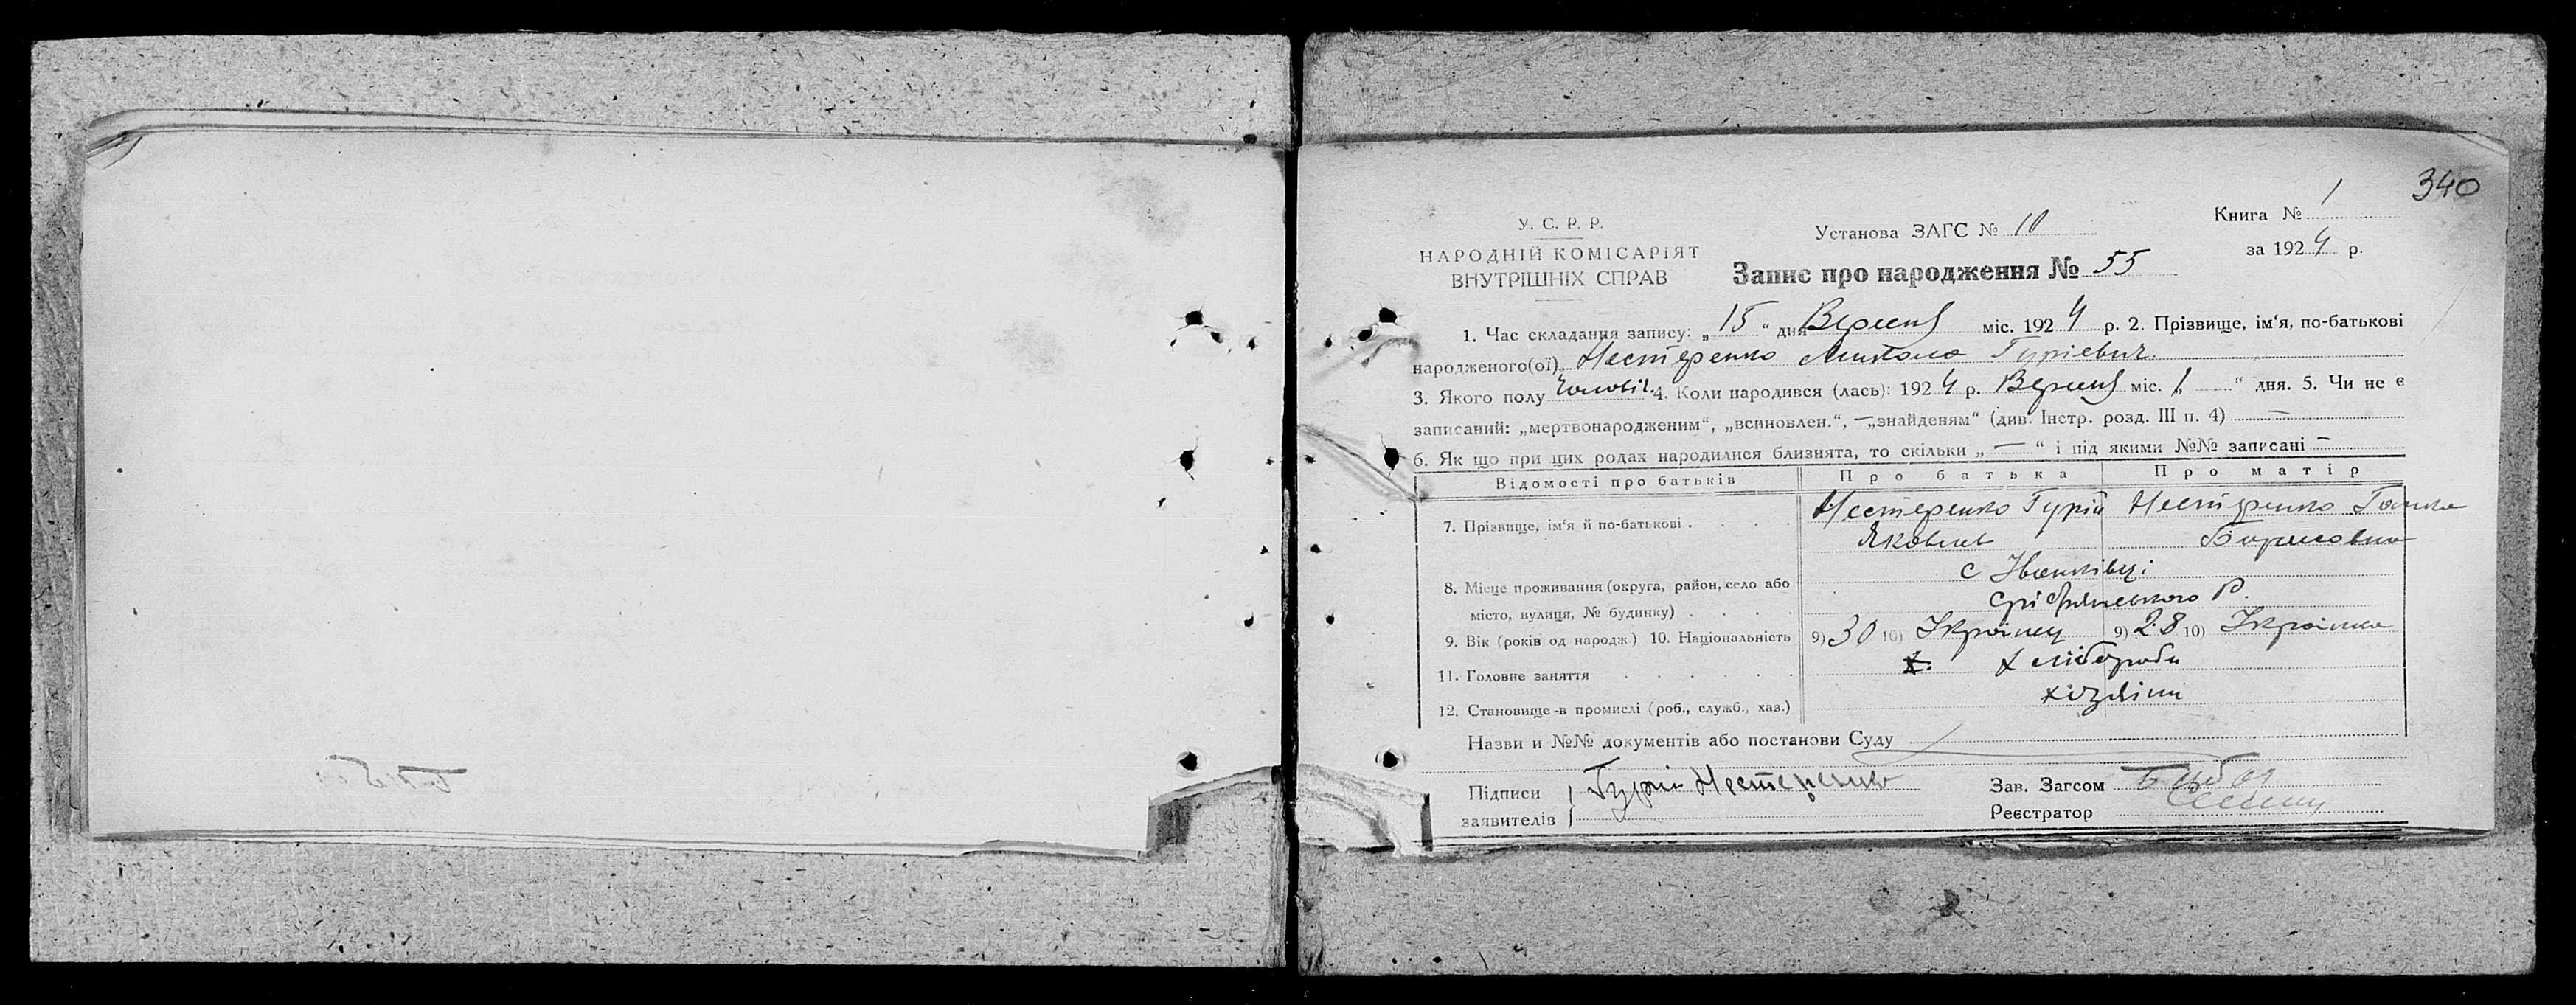 340
Книга № 1
У. С. Р. Р.
Установа ЗАГС № 10
за 1924 р.
НАРОДНІЙ КОМІСАРІЯТ
ВНУТРІШНІХ СПРАВ
Запис про народження № 55
1. Час складання запису: „15“ дня Вересня міс. 1924 р. 2. Прізвище, ім'я, по-батькові
народженого(ої) Нестеренко Микола Гурієвич
3. Якого полу Чоловіч. 4. Коли народився (лась): 1924 р. Вересня міс. „1“ дня. 5. Чи не є
записаний: „мертвонародженим“, „всиновлен.“, —„знайденям“ (див. Інстр. розд. III п. 4) —
6. Як що при цих родах народилися близнята, то скільки „—“ і під якими №№ записані —
Відомості про батьків Про батька Про матір
7. Прізвище, ім'я й по-батькові . . . . Нестеренко Гурій Нестеренко Ганна
Яковлев Борисовна
8. Місце проживання (округа, район, село або с Іванківці
місто, вулиця, № будинку) . . . . Срібрянського Р.
9. Вік (років од народж) 10. Національність 9) 30 10) Українец 9) 28 10) Українка
11. Головне заняття . . . . . . хлібороби
12. Становище в промислі (роб., служб., хаз.) хазяіни
Назви и №№ документів або постанови Суду
Підписи Гурій Нестеренко Зав. Загсом
заявителів Реєстратор